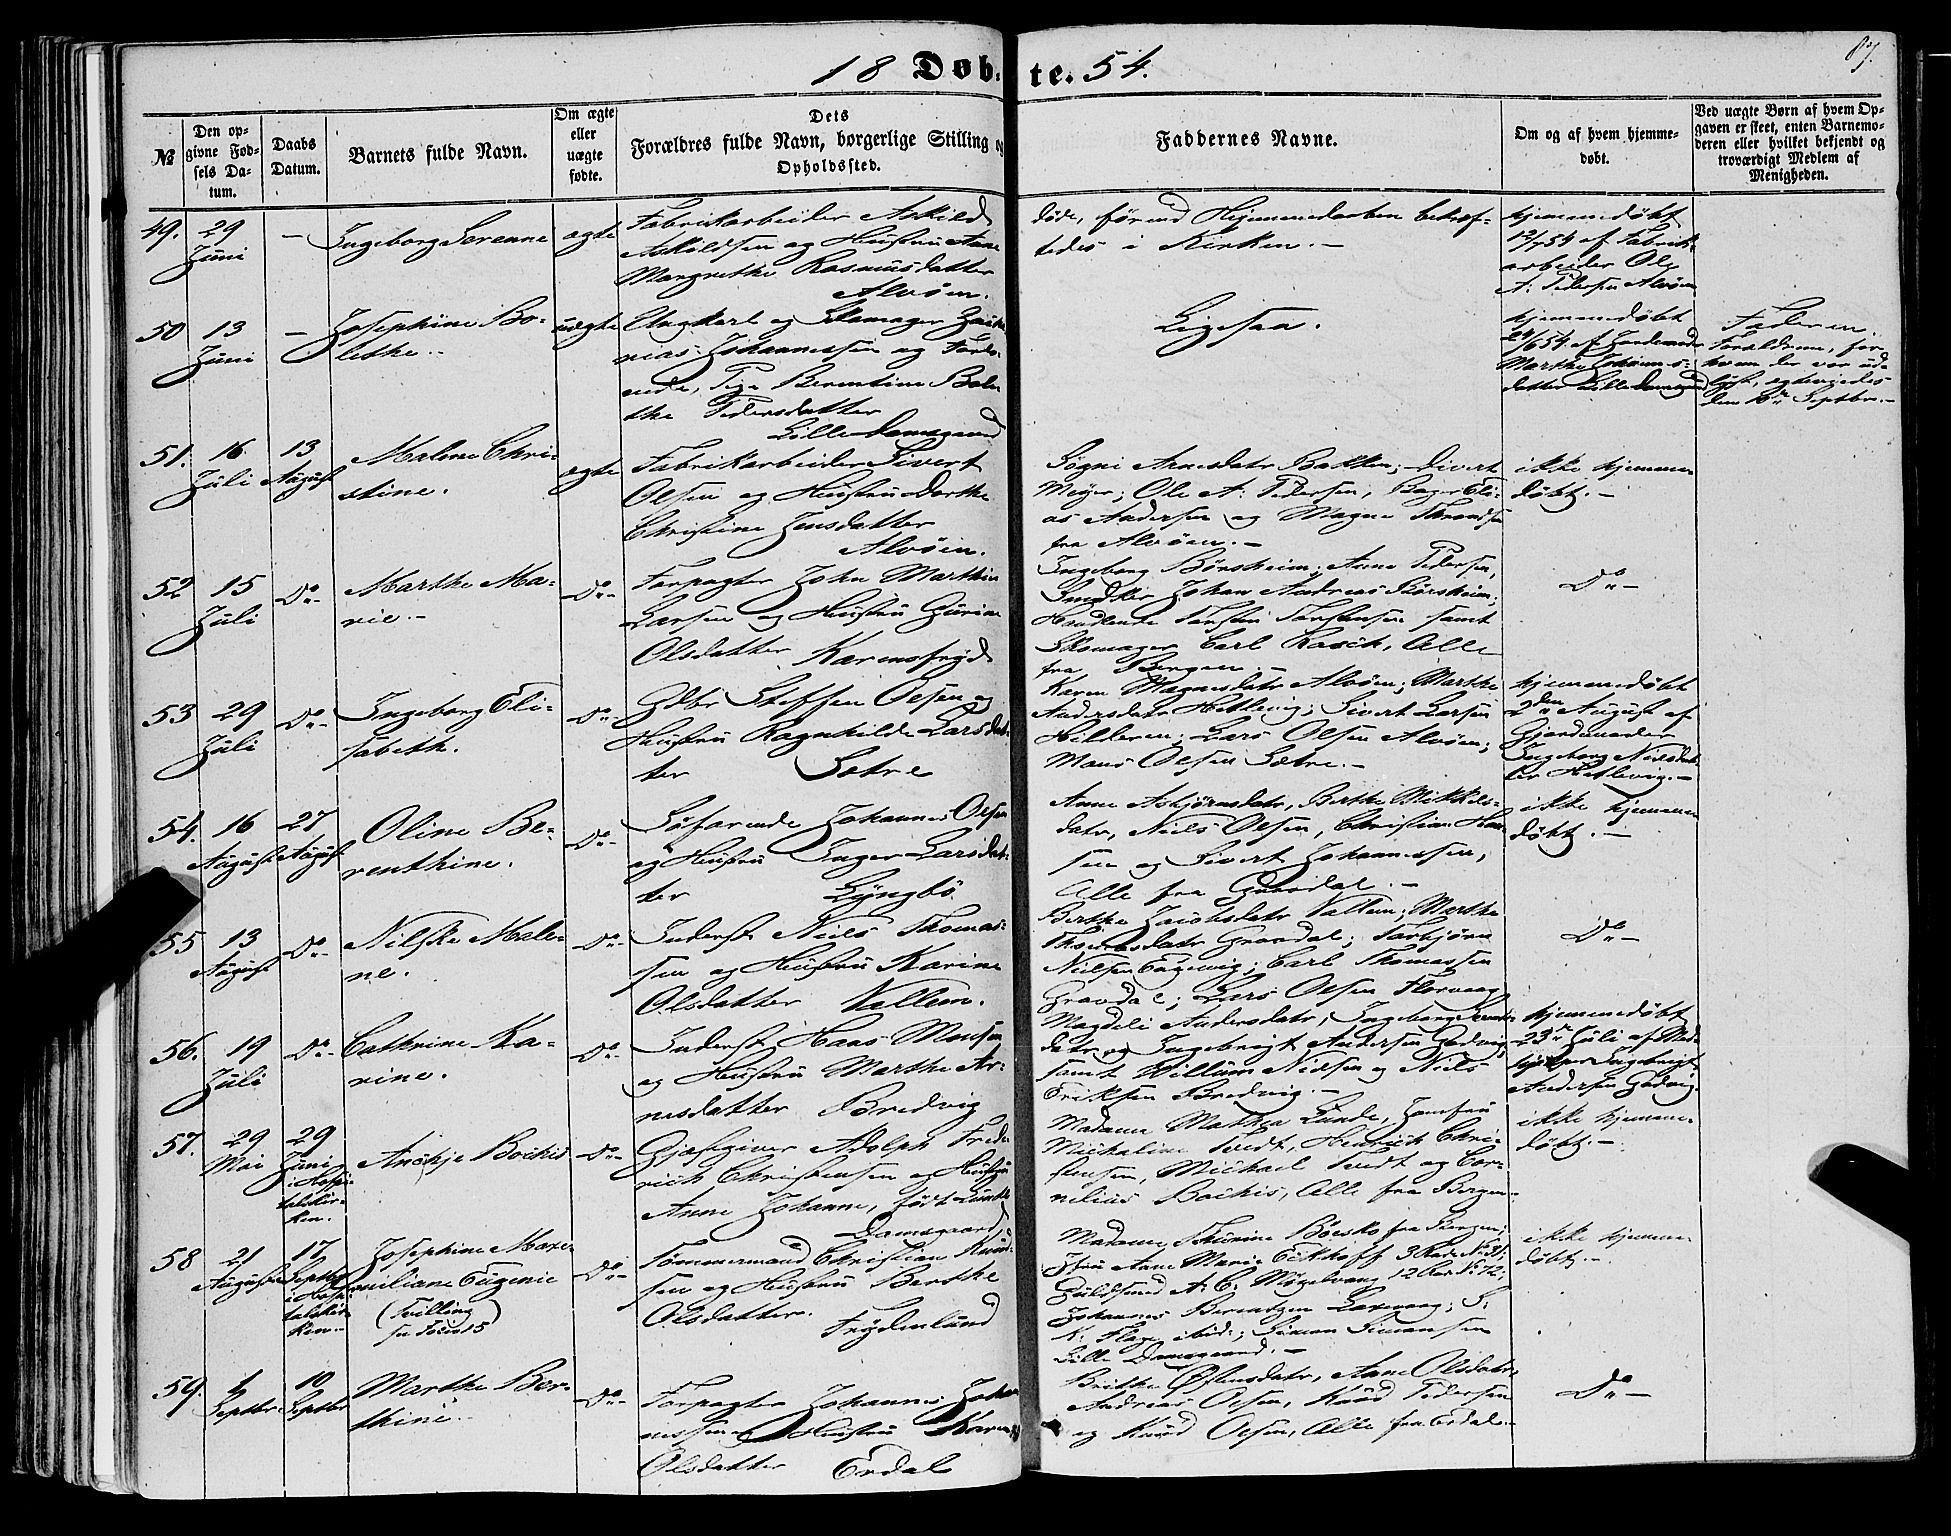 87.
18 Døb-te. 54.
№
Den opgivne Fødsels Datum.
Daabs Datum.
Barnets fulde Navn.
Om ægte eller uægte fødte.
Dets Forældres fulde Navn, borgerlige Stilling og Opholdssted.
Faddernes Navne.
Om og af hvem hjemmedøbt.
Ved uægte Børn af hvem Opgaven er skeet, enten Barnemoderen eller hvilket bekjendt og troværdigt Medlem af Menigheden.
49.
29
Juni
–
Ingeborg Serenne
ægte
Fabrikarbeider Askild
Askildsen og Hustru Anne
Margrethe Rasmusdatter
Alvøen.
døde, førend Hjemmedaaben bekræf-
tedes i Kirken.–
hjemmedøbt
12/7 54 af Fabrik-
arbeider Ole
A. Pedersen Alvøen
50
13
Juni
–
Josephine Bo-
lethe.
uægte
Ungkarl og Skomager Zacha-
rias Johannessen og
Pige Berentine Bole-
the Pedersdatter
Lille Damsgaard
Ligesaa.
hjemmedøbt
24/6 54 af
Marthe Johannes-
datter Lille Damsgaard
Faderen.
Forældrene, for
hvem der var ud-
lyst, egteviedes
den 10de Septbr.–
51.
16
Juli
13
August
Malene Chri-
stine.
ægte
Fabrikarbeider Sivert
Olsen og Hustru Dorthe
Christine Jensdatter
Alvøen.
Søgni Arnesdatr Bakken; Sivert
Meyer; Ole A. Pedersen, Bager Eli-
as Andersen og Magne
fra Alvøen.–
ikke hjemme-
døbt.–
52
15
Juli
Do–
Marthe Ma-
rie.–
Do–
Forpagter John Martin
Larsen og Hustru Gurine
Olsdatter Karensfryd
Ingeborg Børsheim; Anne Pedersen,
Snedker Johan Andreas Børsheim;
Torsten Torstensen samt
Skomager Carl Rasch, Alle
fra Bergen.–
Do–
53
29
Juli
Do–
Ingeborg Eli-
sabeth.
Do–
Gdbr Steffen Olsen og
Hustru Ragnhilde Larsdat-
ter Sætre
Karen Magnesdatr Alvøen; Marthe
Andersdatr Hetlevig; Sivert Larsen
Hilderen; Lars Olsen Alvøen;
Mons Olsen Sætre.–
hjemmedøbt
2den August af
Gjordemoder
Ingeborg Nielsdat-
ter Hetlevig.–
54.
16
August
27
August
Oline Be-
renthine.
Do–
Søfarende Johannes Olsen
og Hustru Inger Larsdat-
ter Lyngbø
Anne Asbjørnsdatr, Berthe Mikkels-
datr, Niels Olsen, Christian Han-
sen og Sivert Johannessen,
Alle fra Gravdal.–
ikke hjemme-
døbt.–
55
13
August
Do–
Nilske Male-
ne.
Do–
Inderst Niels Thomas-
sen og Hustru Karine
Olsdatter Vallem.
Berthe Jacobsdatr Vallem; Marthe
Thomasdatr Gravdal; Torbjørn
Nielsen; Carl Thomassen
Gravdal; Lars Olsen Florvaag
Do–
56.
19
Juli
Do–
Cathrine Ka-
rine.
Do–
Inderst Haas Monsen
og Hustru Marthe Ar-
nesdatter Bredvig
Magdeli Andersdatr, Ingeborg
datr og Ingebrigt Andersen Godvig
samt Willum Nielsen og Niels
Eriksen Bredvig.–
hjemmedøbt
23de Juli af
Ingebrigt
Andersen Godvig.
57.
29
Mai
29
Juni
i Hospi-
talskir-
ken.
Anchje Bochis
Do–
Gjæstgiver Adolph Frede-
rich Christensen og Hustru
Anne Johanne, født Lunde
Damsgaard
Madame Mathea Lunde, Jomfru
Michaline Tvedt, Henrich Chri-
stensen, Michael Tvedt og Cor-
nelius Bochis, Alle fra Bergen.
ikke hjemme-
døbt.–
58
21
August
17
Septbr
i Hospi-
talskir-
ken.
Josephine Maxi-
miliane Eugenie
(Tvilling
15)
Do–
Tømmermand Christian Knud-
sen og Hustru Berthe
Olsdatter.
Frydenlund
Madame Thrine fra Bergen;
Jfru Anne Marie Eckhoff 3 Rode No 31;
Guldsmed A. C. Møgelvang 12 Rode No 72;
Johannes Berentzen Laxevaag; S.
K. Flage, ibid.; Simon Simonsen
Lille Damsgaard.–
ikke hjemme-
døbt.–
59.
1
Septbr
10
Septbr
Marthe Ber-
thine.
Do–
Forpagter Johannes Johan-
nessen og Hustru Karen
Olsdatter Erdal
Brithe Østensdatr, Anne Olsdatr,
Andreas Olsen, Knud Pedersen
og Knud Olsen, Alle fra Erdal.–
Do–